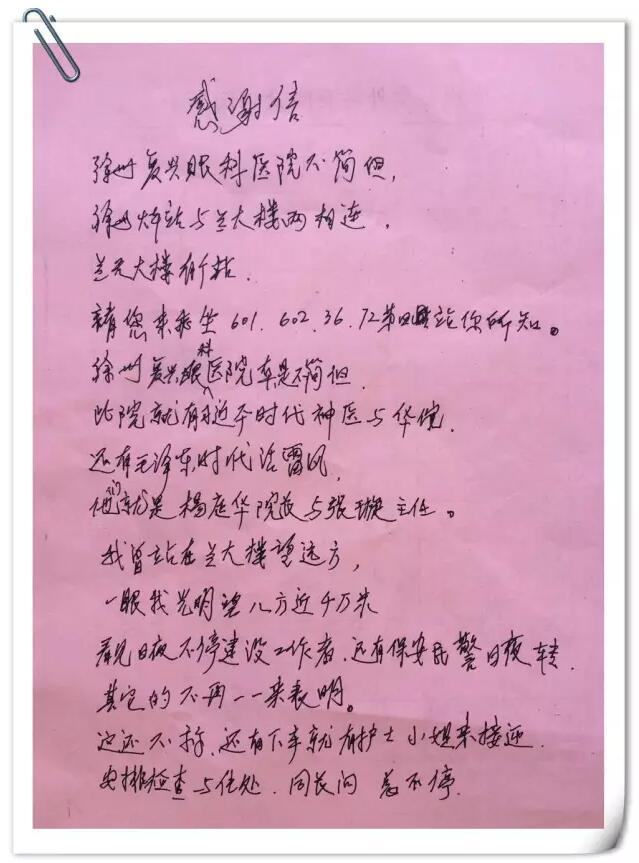 感谢信
徐州复兴眼科医院不简但,
徐州火车站与兰大楼两相连,
兰天大楼价站.
请您来乘坐 601. 602. 36. 72 第四站你所知。
徐州复兴眼科医院真是不简但.
此院就有习近平时代神医与华佗.
还有毛泽东时代活雷风,
他们就是杨庭华院长与张璇主任。
我曾站在兰大楼望远方,
一眼我光明望八方近千万米
看见日夜不停建设工作者.还有保安民警日夜转.
其它的不再一一来表明。
这还不称.还有下车就有护士小姐来接迎.
安排检查与住处.问长问 总不停.